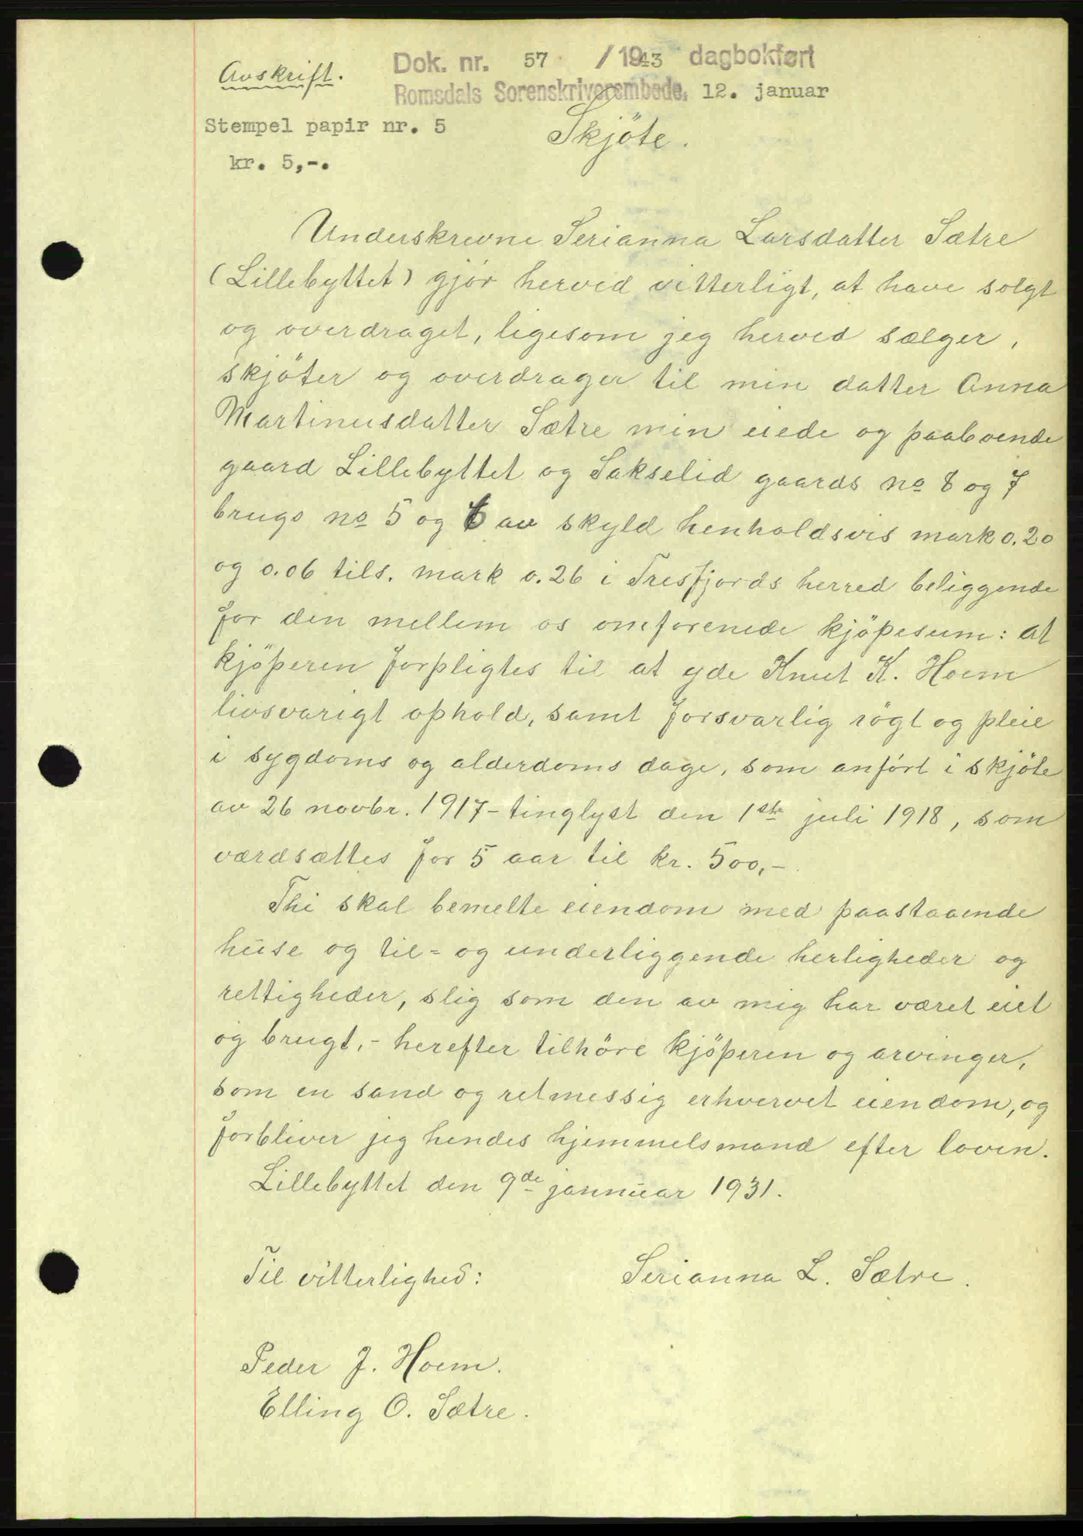 Avskrift.
Dok. nr. 57 / 1943 dagbokført
Romsdals Sorenskriverembede, 12. januar
Stempel papir nr. 5
kr. 5,-.
Skjöte.
Underskrevne Serianna Larsdatter Sætre
(Lillebyttet) gjör herved vitterligt, at have solgt
og overdraget, ligesom jeg herved sælger,
skjöter og overdrager til min datter Anna
Martinusdatter Sætre min eiede og paaboende
gaard Lillebyttet og Sakselid gaards no 8 og 7
brugs no 5 og 6 av skyld henholdsvis mark 0.20
og 0.06 tils. mark 0.26 i Tresfjords herred beliggende
for den mellem os omforenede kjöpesum: at
kjöperen forpligtes til at yde Knut K. Hoem
livsvarigt ophold, samt forsvarlig rögt og pleie
i sygdoms og alderdoms dage, som anfört i skjöte
av 26 novbr. 1917 - tinglyst den 1ste juli 1918, som
værdsættes for 5 aar til kr. 500,-
Thi skal bemelte eiendom med paastaaende
huse og til- og underliggende herligheder og
rettigheder, slig som den av mig har været eiet
og brugt, - herefter tilhöre kjöperen og arvinger,
som en sand og retmessig erhvervet eiendom, og
forbliver jeg hendes hjemmelsmand efter loven.
Lillebyttet den 9de jannuar 1931.
Til vitterlighed:
Serianna L. Sætre.
Peder J. Hoem.
Elling O. Sætre.